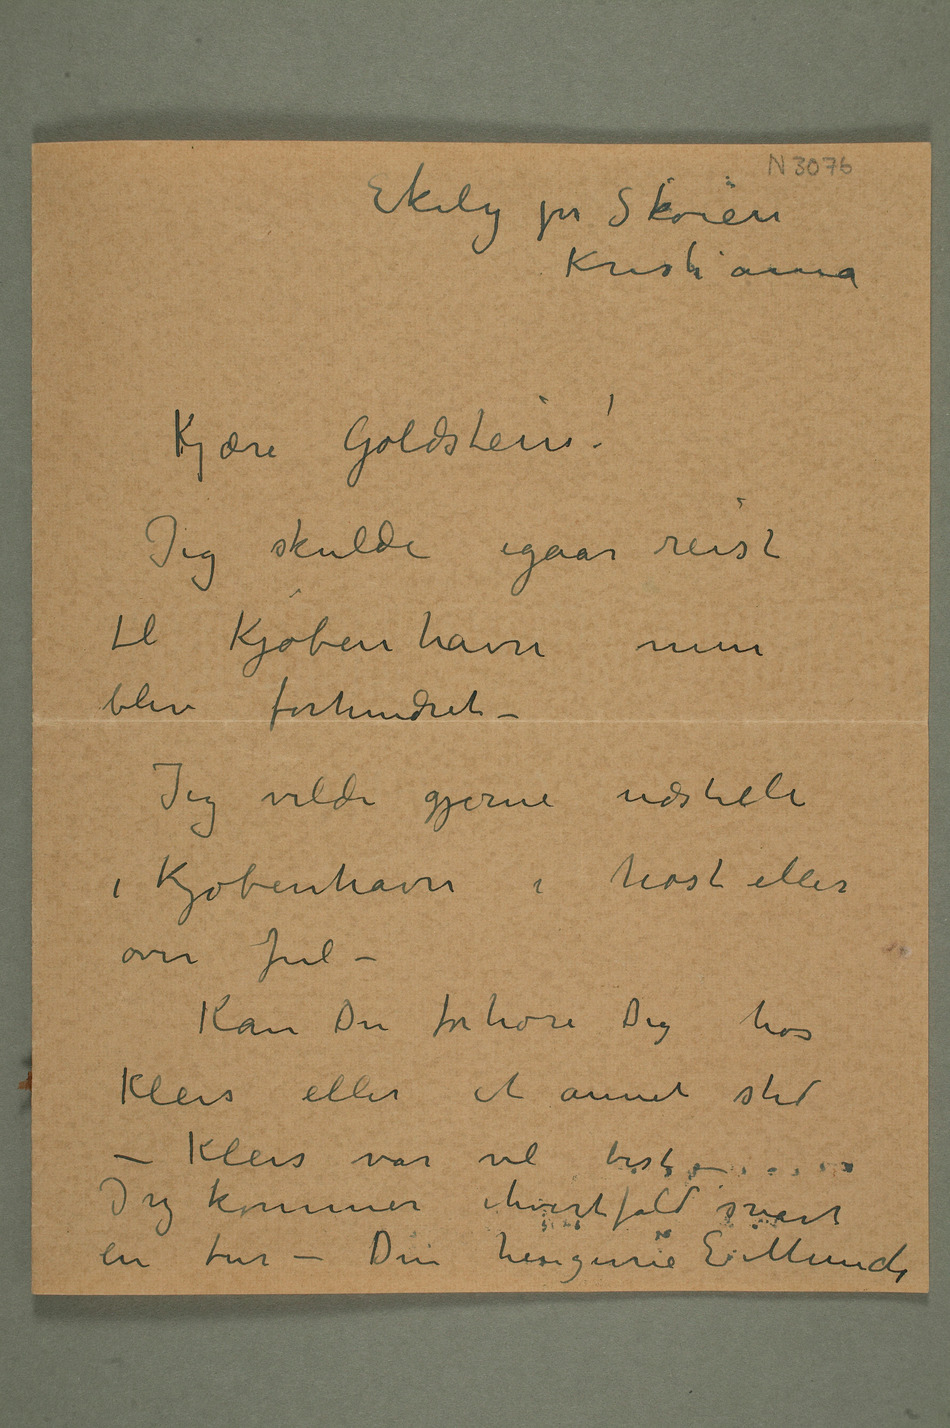 N 3076
Ekely pr Skøien
Kristiania
Kjære Goldstein!
Jeg skulde igaar reist
til Kjøbenhavn men
blev forhindret –
Jeg vilde gjerne udstille
i Kjøbenhavn i høst eller
over Jul –
Kan Du forhøre Dig hos
Kleis eller et annet sted
– Kleis var vel best –
Jeg kommer ihvertfald snart
en tur – Din hengivne E. Munch